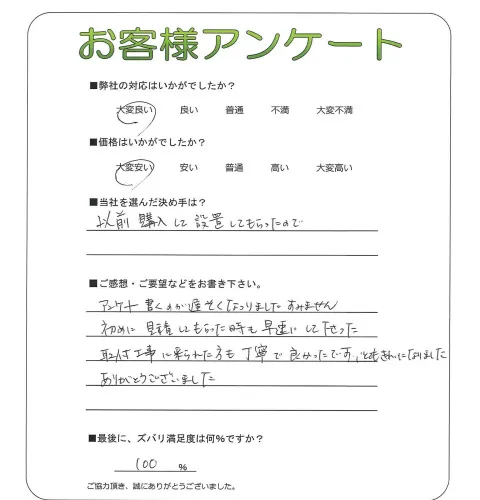 お客様アンケート
■弊社の対応はいかがでしたか？
大変良い 良い 普通 不満 大変不満
■価格はいかがでしたか？
大変安い 安い 普通 高い 大変高い
■当社を選んだ決め手は？
以前購入して設置してもらったので
■ご感想・ご要望などをお書き下さい。
アンケート書くのが遅くなりました すみません
初めに見積してもらった時も早速に して下さった
取付工事に来られた方も丁寧で良かったです。とてもきれいになりました
ありがとうございました
■最後に、ズバリ満足度は何%ですか？
100 %
ご協力頂き、誠にありがとうございました。